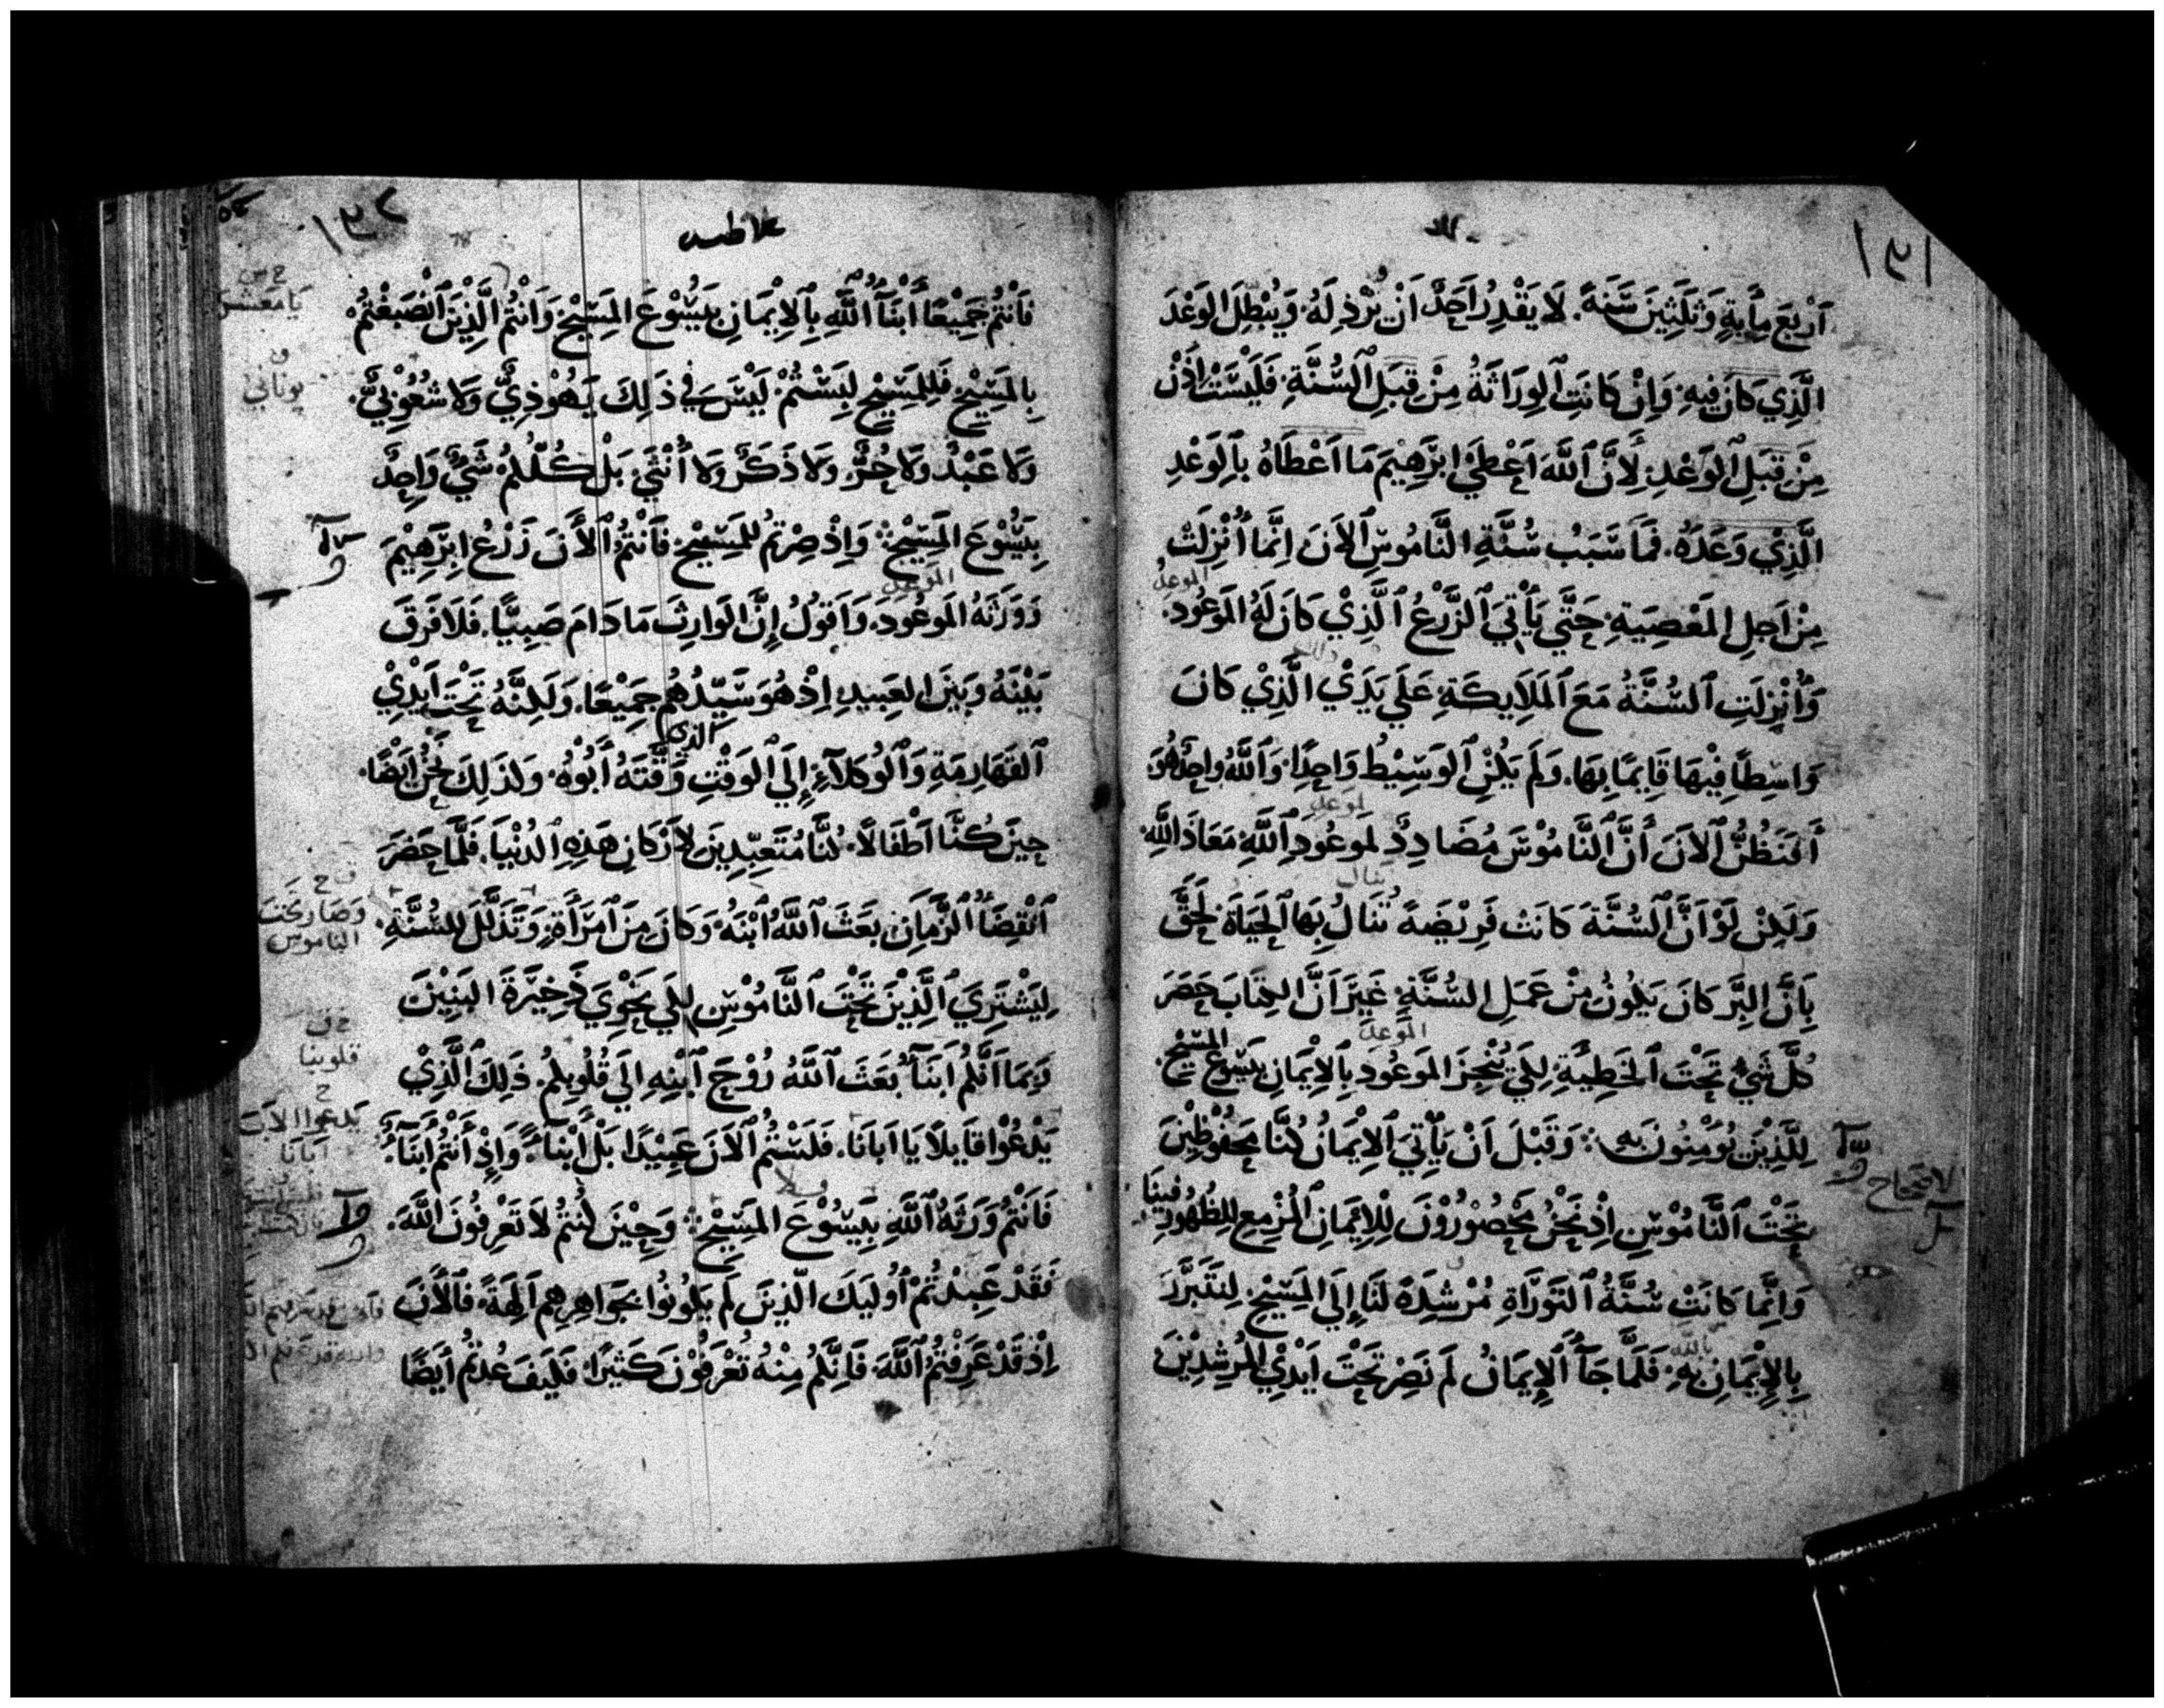 ١٣١
اَرْبَعَ مِأَيةٍ وَثَلَثِيْنَ سَنَةً. لَا يَقْدِرُ اَحَدٌ اَنْ يُرْذِلَهُ وَيُبْطِلَ الوَعْدَ
الَّذِي كَانَ فِيهِ. وَاِنْ كَانَتِ الوِرَاثَةُ مِنْ قِبَلِ السُّنَّةِ. فَلَيْسَتْ اِذَنْ
مِنْ قِبَلِ الوَعْدِ. لِأَنَّ اللَّهَ اَعْطَي اِبْرَهِيْمَ مَا اَعْطَاهُ بِالوَعْدِ
الَّذِيْ وَعَدَهُ. فَمَا سَبَبُ سُنَّةِ النَّامُوسِ الاَنَ اِنَّمَا اُنْزِلَتْ
الموعد
مِنْ اَجلِ المَعْصِيَةِ. حَتَّي يَأْتِيَ الزَّرْعُ الَّذِيْ كَانَ لَهُ المَوعُود.
وَاُنْزِلَتِ السُّنَّةُ مَعَ المَلَايِكَةِ عَلَي يَدَيْ الَّذِيْ كَانَ
وَاسِطًا فِيْهَا قَايِمًا بِهَا. وَلَمْ يَكُنِ الوَسِيْطُ وَاحِدًا. وَاللَّهُ واحِدٌ هُوَ
لموعد
أَفَتَظُنُّ الاَنَ أَنَّ النَّامُوْسَ مُضَادِدٌ لِموعُودِ اللَّهِ مَعَاذَ اللَّهِ.
ينال
وَلَكِنْ لَوْ اَنَّ السُّنَّةَ كَانَتْ فَرِيْضَةً تُنَالُ بِهَا الحَيَاةَ لَحَقَّ
بِاَنَّ البِرَّ كَانَ يَكُونُ مِنْ عَمَلِ السُّنَّةِ. غَيْرَ اَنَّ الكِتَابَ حَصَرَ
الموعد
كُلَّ شَيْءٍ تَحْتَ الخَطِيَّةِ. لِكَيْ يُنْجِزَ المَوعُود بِالاِيْمَانِ بِيَسُوْعَ المَسِيْحِ.
لِلَّذِيْنَ يُوْمِنُونَ بِهِ. وَقَبْلَ اَنْ يَأْتِيَ الاِيمَانُ كُنَّا مَحْفُوظِيْنَ
تَحْتَ النَّامُوْسِ اِذْ نَحْنُ مَحْصُوْرُوْنَ لِلاِيْمَانِ المُزْمِعِ لِلظُهُورِ فِينَا
وَاِنَّمَا كَانَتْ سُنَّةُ التَوْرَاةِ مُرْشِدَةً لَنَا اِلَي المَسِيْحِ. لِنَتَبَرَّرَ
بالله
بِالاِيْمَانِ بِهِ. فَلَمَّا جَاَ الاِيمَانُ لَمْ نَصِرْ تَحْتَ اَيْدِيْ المُرْشِدِيْنَ
١٣٢
غلاطيه
فَاَنْتُمْ جَمِيْعًا أَبْنَآُ اللَّهِ بِالاِيْمَانِ بِيَسُوْعَ المَسِيْحِ وَاَنْتُمُ الَّذِيْنَ انْصَبَغْتُمْ
بِالمَسِيْحِ فَلِلمَسِيْحِ لَبِسْتُمْ لَيْسَ فِي ذَلِكَ يَهُوْذِيٌّ وَلَا شُعُوْبِيٌّ.
يوناني
وَلَا عَبْدٌ وَلَا حُرٌّ. وَلَا ذَكَرٌ وَلَا أُنْثَي. بَلْ كُلُّكُمْ شَيْءٌ وَاحِدٌ
بِيَسُوْعَ المَسِيْحِ. وَاِذْ صِرْتُمْ لِلمَسِيْحِ فَاَنْتُمُ الأَنَ زَرْعُ اِبْرَهِيْمَ
الموعد
وَوَرَثَهُ المَوعُودَ. وَاَقولُ اِنَّ الوَارِثَ مَا دَامَ صَبِيًّا. فَلَا فَرْقَ
بَيْنَهُ وَبَيْنَ العَبِيدِ اِذْ هُوَ سَيِّدُهُم جَمِيْعًا. وَلَكِنَّهُ تَحْتَ اَيْدِيْ
الذي
القَهَارِمَةِ وَالوُكَلَآءِ. اِلَي الوَقْتِ وَقَّتَهُ أَبُوْهُ. وَلذَلِكَ نَحْنُ اَيْضًا.
حِينَ كُنَّا اَطْفَالاً. كُنَّا مُتَعَبِّدِيْنَ لاَرْكَانِ هَذِهِ الدُّنْيَا. فَلَمَّا حَضَرَ
وَصَارَ تَحْتَ
الناموس
انْقِضَاُ الزَّمَانِ. بَعَثَ اللَّهُ ابْنَهُ وَكَانَ مِنَ امْرَأَةٍ. وَتَذَلَّلَ لِلسُّنَّةِ.
لِيَشْتَرِيَ الَّذِيْنَ تَحْتَ النَّامُوْسِ لِكَي نَحْوِيَ ذَخِيْرَةَ البَنِيْنَ
قلوبنا
وَبِمَا اَنَّكُمْ اَبْنَآءٌ بَعَثَ اللَّهُ رُوْحَ ابْنِهِ اِلَي قُلُوبِكُمْ. ذَلِكَ الَّذِيْ
يدعوا الاب
ابانا
يَدْعُوْا قَايِلاً يَا اَبَانَا. فَلَسْتُمُ الاَنَ عَبِيْدًا بَلْ أَبْنَآءً. وَاِذْ أَنْتُمْ أَبْنَآءٌ.
فَاَنْتُمْ وَرَثَةُ اللَّهِ بِيَسُوْعَ المَسِيْحِ. وَحِيْنَ كُنتُمْ لاَ تَعْرِفُونَ اللَّهَ.
فَقَدْ عَبَدْتُمْ اُولَيكَ الَّذِيْنَ لَمْ يَكُونُوا بِجَوَاهِرِهِمْ اَلِهَةً. فَالأَنَ
اِذْ قَدْ عَرَفْتُمُ اللَّهَ فَاِنَّكُمْ مِنْهُ تُعْرَفُوْنَ كَثِيْرًا. فَكَيْفَ عُدتُمْ اَيضًا